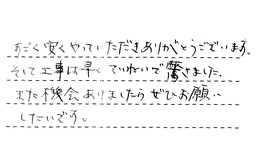 すごく安くやっていただきありがとうございます。
そして工事は早くていねいで驚きました。
また機会ありましたらぜひお願い
したいです。